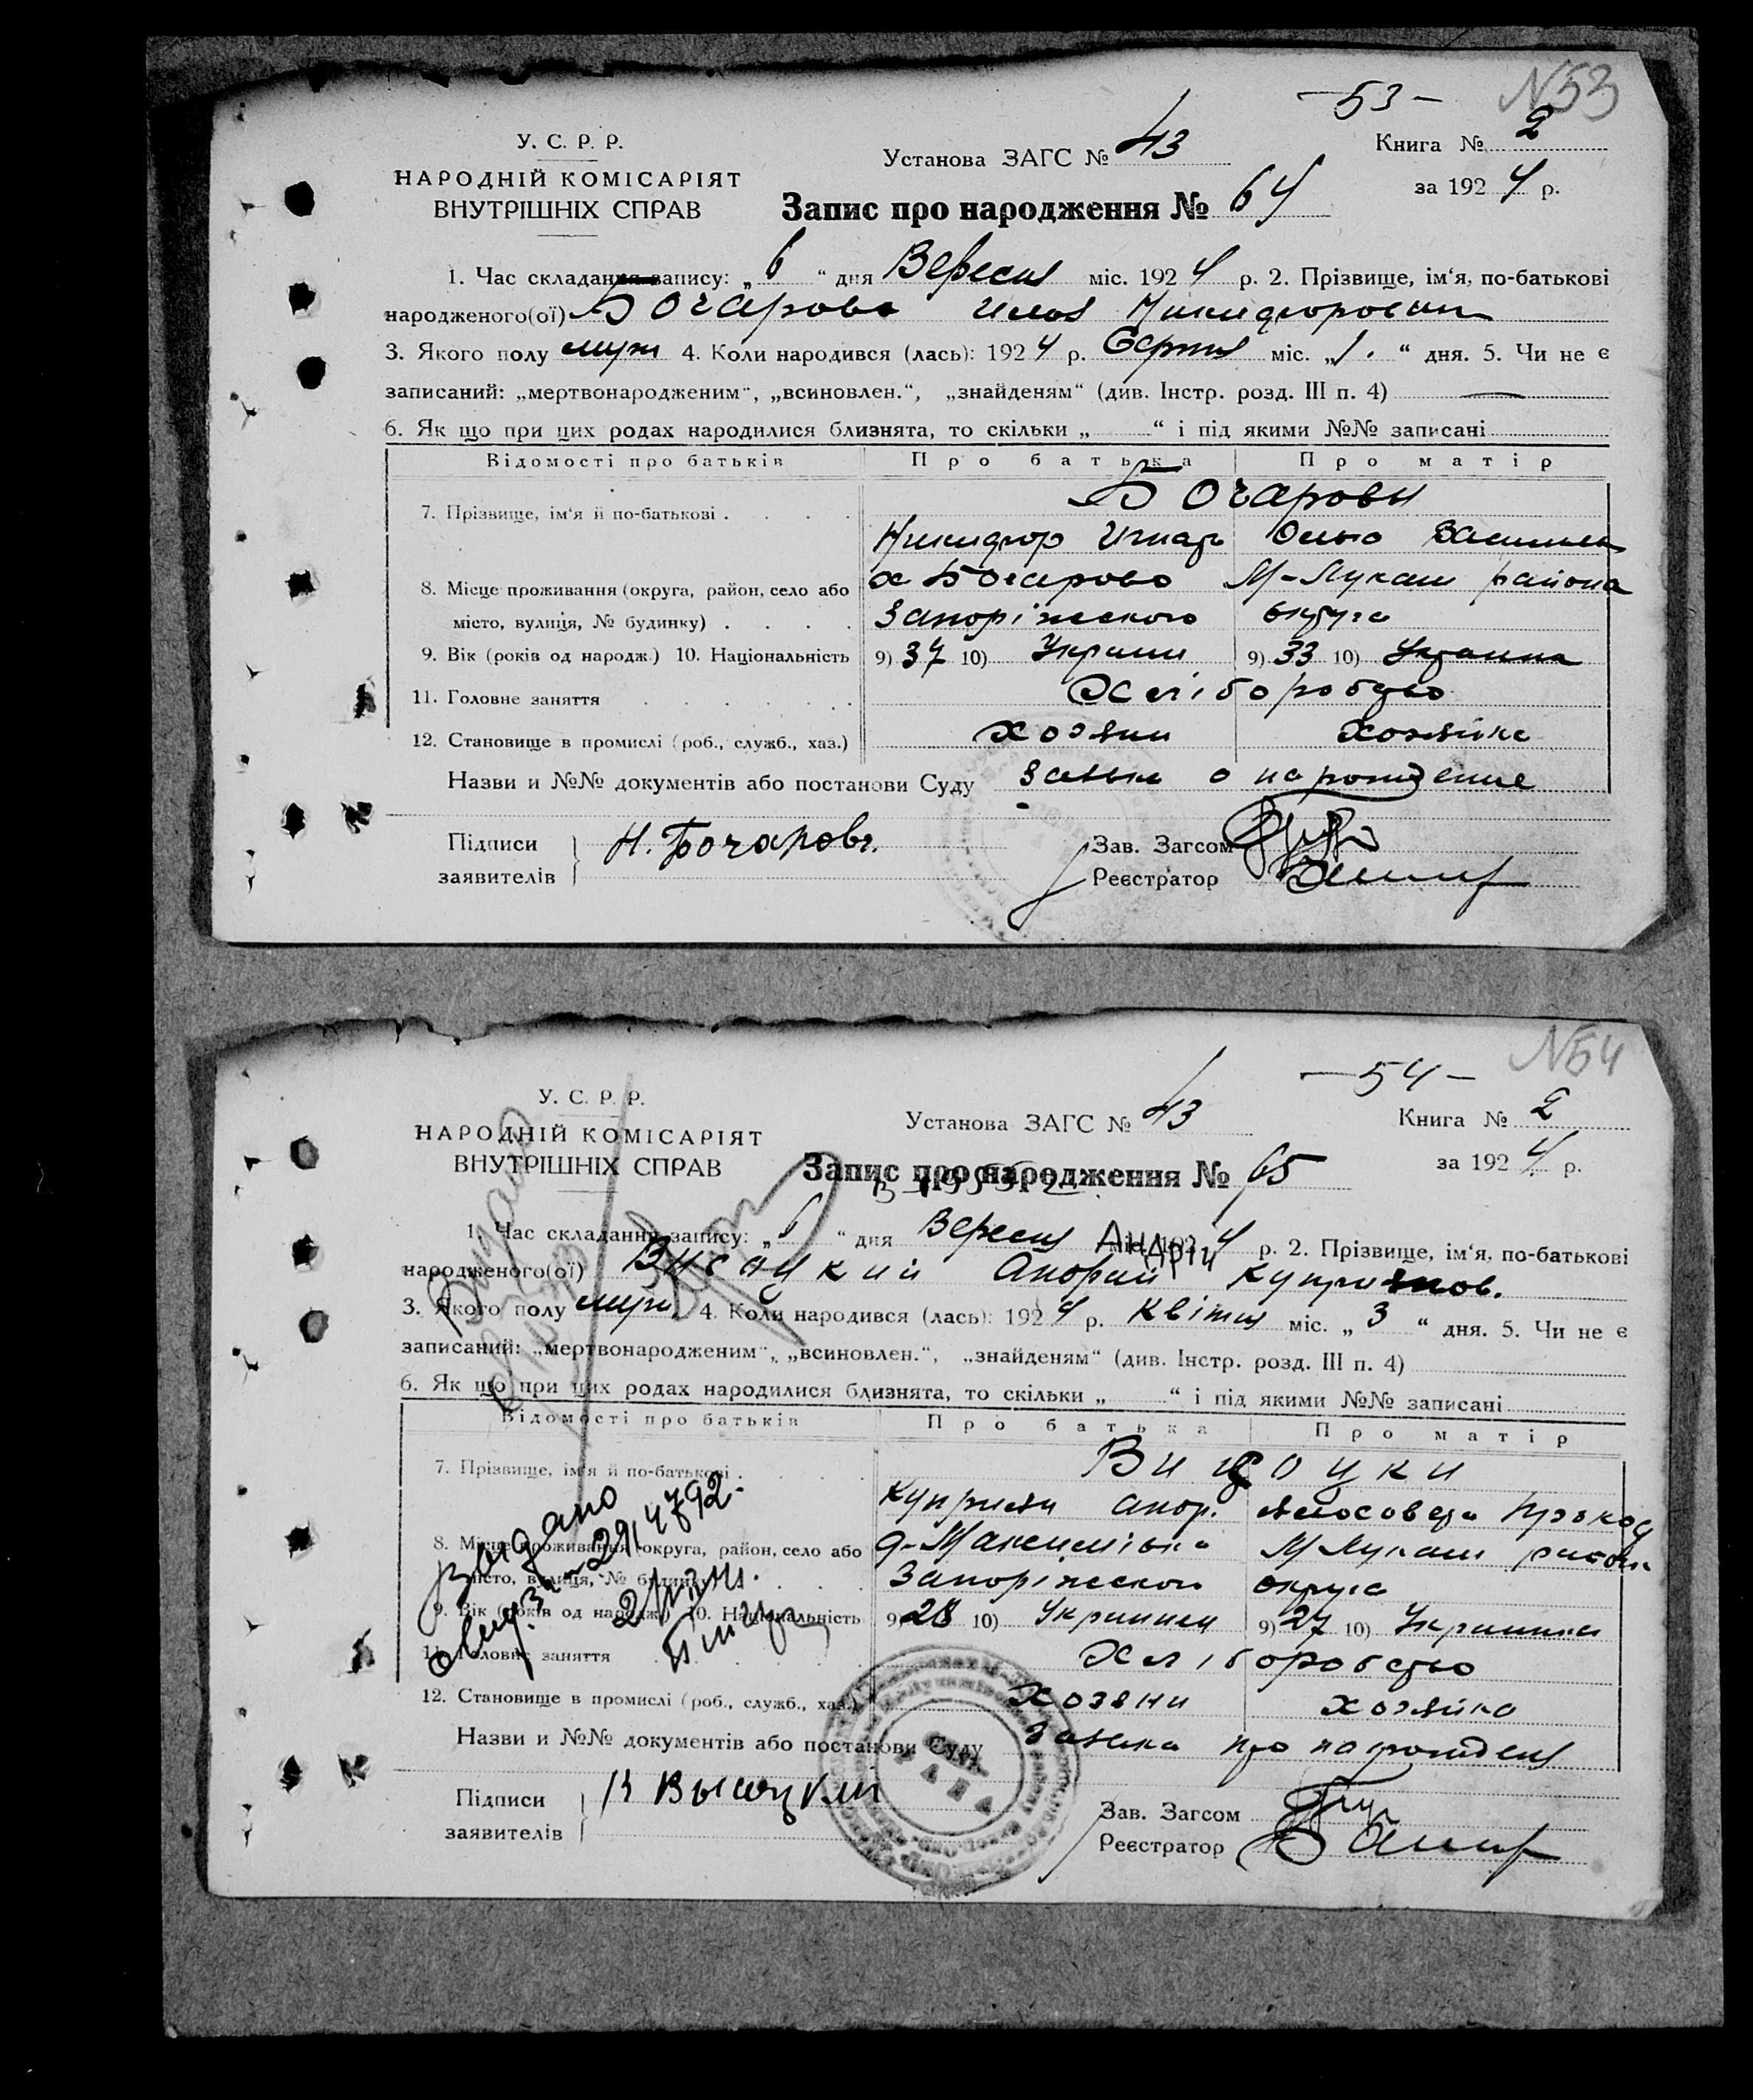 -53- N53
У. С. Р. Р.
Установа ЗАГС № 43 Книга № 2
НАРОДНІЙ КОМІСАРІЯТ
ВНУТРІШНІХ СПРАВ
за 1924 р.
Запис про народження № 64
1. Час складання запису: „6“ дня Вересня міс. 1924 р. 2. Прізвище, ім‘я, по-батькові
народженого(ої) Бочарова
3. Якого полу муж 4. Коли народився (лась): 1924 р. Серпня міс. „1.“ дня. 5. Чи не є
записаний: „мертвонародженим“, „всиновлен.“, „знайденям“ (див. Інстр. розд. III п. 4) —
6. Як що при цих родах народилися близнята, то скільки „ “ і під якими №№ записані
Відомості про батьків Про батька Про матір
7. Прізвище, ім‘я й по-батькові Бочаровы
Никифор Игнат
8. Місце проживання (округа, район, село або х Бочарово М-Лукаш района
місто, вулиця, № будинку) Запоріжского округа
9. Вік (років од народж.) 10. Національність 9) 37 10) 9) 33 10)
11. Головне заняття Хліборобство
12. Становище в промислі (роб., служб., хаз.) хозяин хозяйка
Назви и №№ документів або постанови Суду о нарождение
Підписи
заявителів
Н. Бочаровъ.
Зав. Загсом
Реєстратор
-54- N54
У. С. Р. Р.
Установа ЗАГС № 43 Книга № 2
НАРОДНІЙ КОМІСАРІЯТ
ВНУТРІШНІХ СПРАВ
за 1924 р.
Запис про народження № 65
1. Час складання запису: „6“ дня Вересня 4 р. 2. Прізвище, ім‘я, по-батькові
Андрій
народженого(ої) Висоцкий Андрий Куприянов.
3. Якого полу муж 4. Коли народився (лась): 1924 р. Квітня міс. „3“ дня. 5. Чи не є
записаний: „мертвонародженим“, „всиновлен.“, „знайденям“ (див. Інстр. розд. III п. 4)
6. Як що при цих родах народилися близнята, то скільки „ “ і під якими №№ записані
Відомості про батьків Про батька Про матір
7. Прізвище, ім‘я й по-батькові Висоцки
Куприян Андр.
8. Місце проживання (округа, район, село або М Лукаш район
місто, вулиця, № будинку) Запоріжского округа
9. Вік (років од народж.) 10. Національність 9) 28 10) 9) 27 10)
11. Головне заняття Хліборобство
12. Становище в промислі (роб., служб., хаз.) хозяин хозяйка
Назви и №№ документів або постанови Суду Заявка про нарождення
Видано
Підписи
заявителів
К Высоцкий
Зав. Загсом
Реєстратор